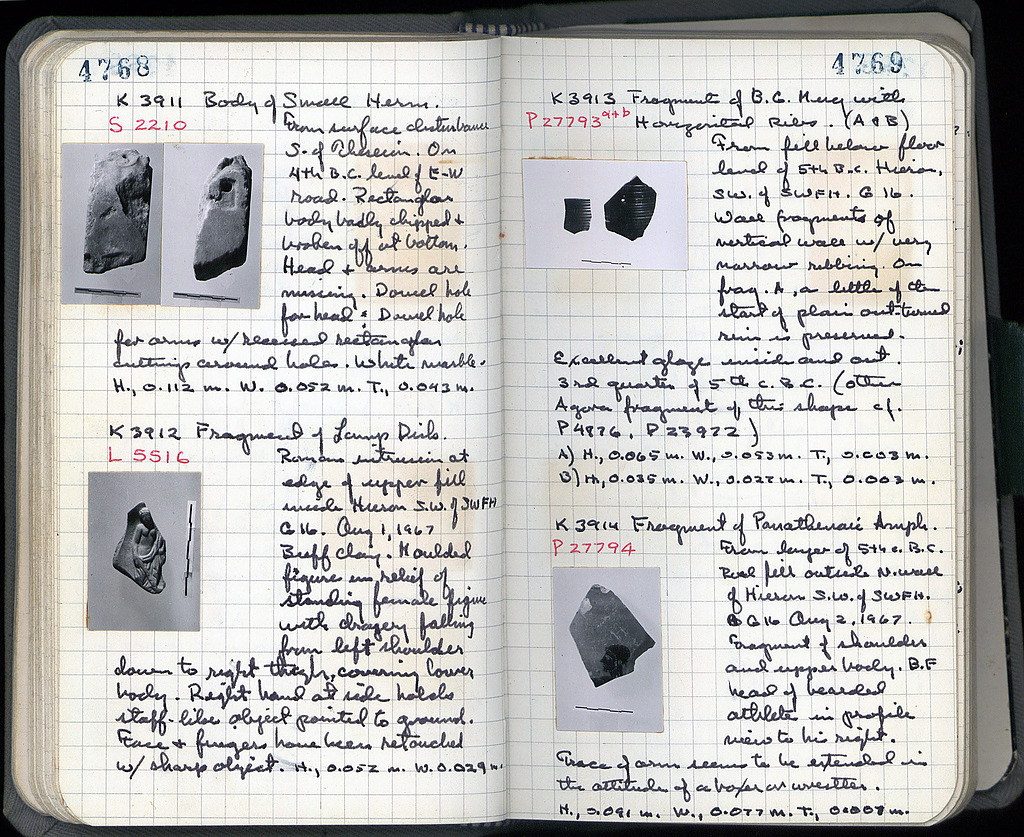 4768
K 3911 Body of Small Herm.
S 2210
From surface disturbance
S. of Theseion. On
4th B.C. level of E-W
road. Rectangular
body badly chipped +
broken off at bottom.
Head + arms are
missing. Dowel hole
for head & Dowel hole
for arms w/ recessed rectangular
cuttings around holes. White marble.
H., 0.112 m. W. 0.052 m. T., 0.043 m.
K 3912 Fragment of Lamp Disk.
L 5516
Roman intrusion at
edge of upper fill
inside Hieron S.W. of SWFH
G 16. Aug 1, 1967
Buff clay. Moulded
figure in relief of
standing female figure
with drapery falling
from left shoulder
down to right thigh, covering lower
body. Right hand at side holds
staff-like object pointed to ground.
Face + fingers have been retouched
w/ sharp object. H., 0.052 m. W. 0.029 m.
4769
K 3913 Fragment of B.G. Mug with
P 27793 a+b Horizontal Ribs. (A & B)
From fill below floor
level of 5th B.C. Hieron,
S.W. of SWFH. G 16.
Wall fragments of
vertical wall w/ very
narrow ribbing. On
frag. A, a little of the
start of plain out-turned
rim is preserved.
Excellent glaze inside and out
3rd quarter of 5th c. B.C. (other
Agora fragment of this shape cf.
P 4876, P 23972)
A) H., 0.065 m. W., 0.053 m. T., 0.003 m.
B) H., 0.035 m. W., 0.027 m. T., 0.003 m.
K 3914 Fragment of Panathenaic Amph.
P 27794
From layer of 5th c. B.C.
fill outside N. wall
of Hieron S.W. of SWFH.
G 16 Aug 2, 1967.
Fragment of shoulder
and upper body. B.F
head of bearded
athlete in profile
view to his right.
Trace of arm seems to be extended in
the attitude of a boxer or wrestler.
H., 0.091 m. W., 0.077 m. T., 0.008 m.